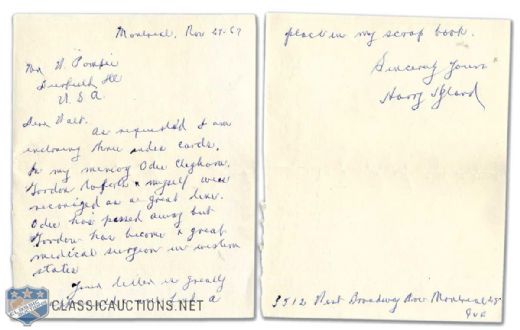 Montreal, Nov 27-67
Mr W. Pompie
Deerfield Ill
U.S.A.
Dear Walt.
As requested I am
inclosing three index cards.
In my memory Odie Cleghorn,
Gordon & myself were
recognized as a great line.
Odie has passed away but
Gordon has become a great
medical surgeon in western
states
Your letter is greatly
a
place in my scrap book.
Sincerly Yours
Harry Hyland
5512 West Broadway Ave Montreal
Que
CLASSICAUCTIONS.NET